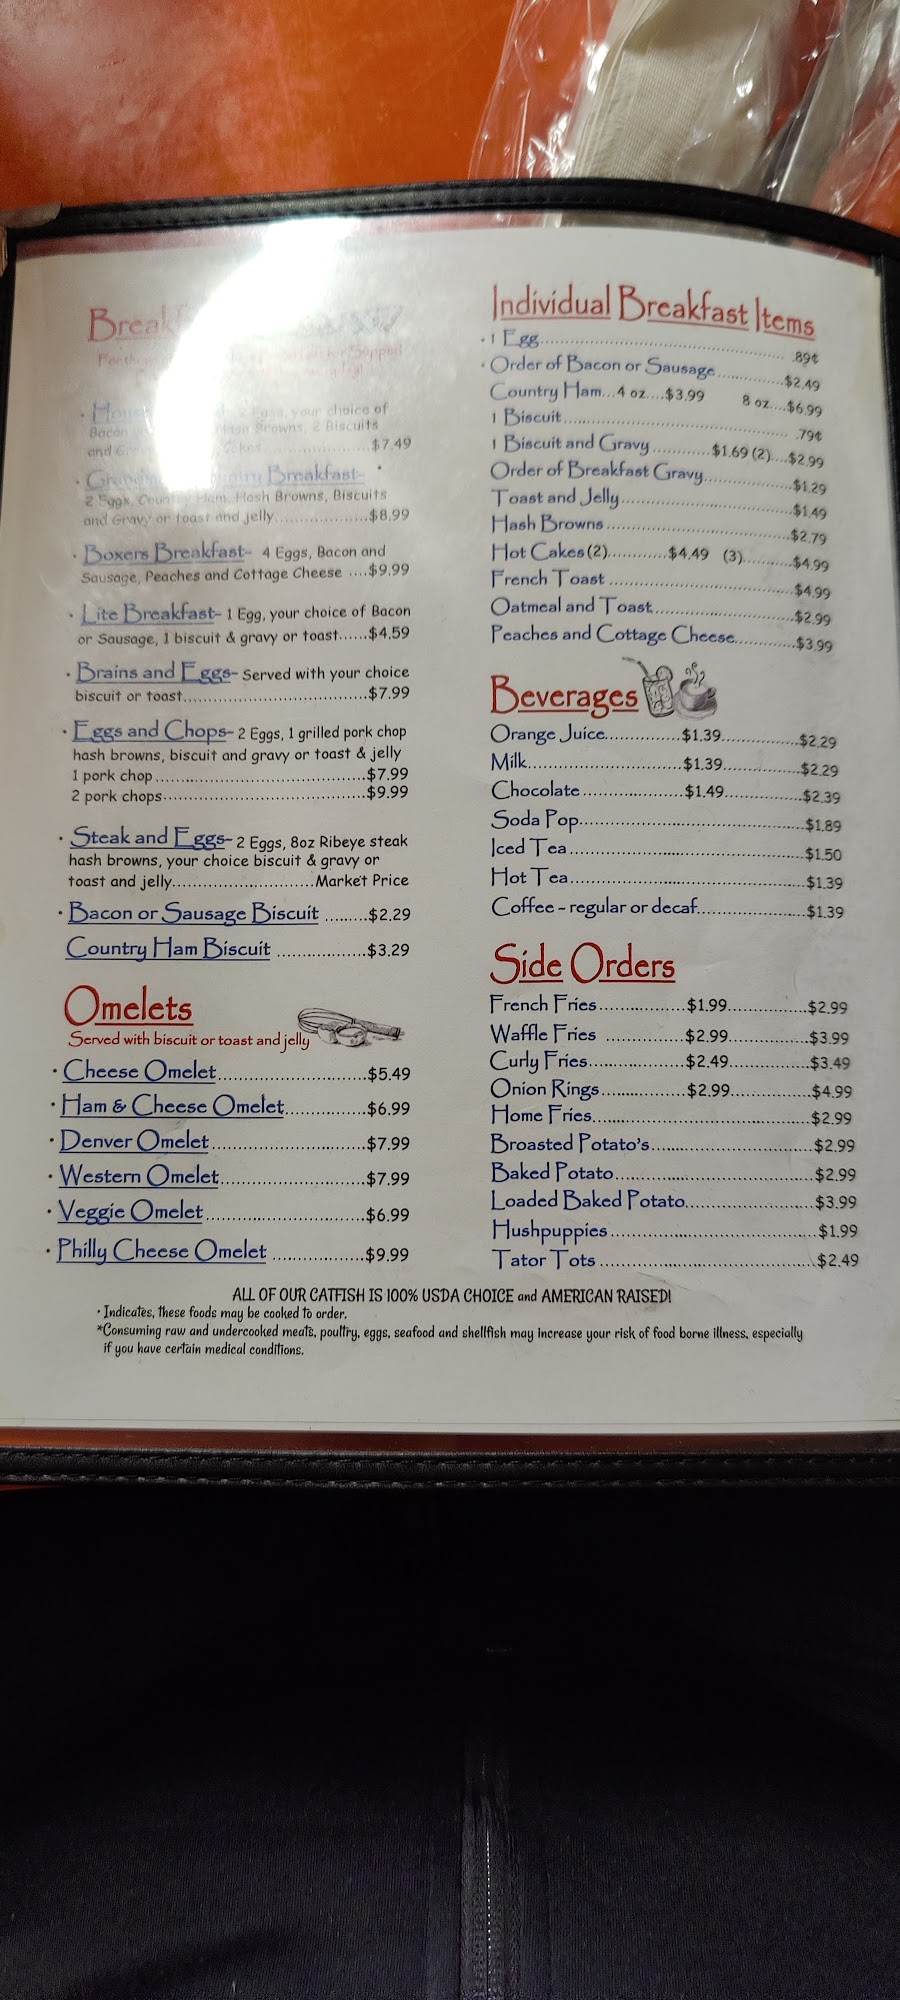 2 Eggs, your choice of
Bacon Browns, 2 Biscuits
and Cakes $7.49
Country Breakfast-
2 Eggs, Country Ham, Hash Browns, Biscuits
and Gravy or toast and jelly....................$8.99
· Boxers Breakfast- 4 Eggs, Bacon and
Sausage, Peaches and Cottage Cheese ....$9.99
· Lite Breakfast- 1 Egg, your choice of Bacon
or Sausage, 1 biscuit & gravy or toast......$4.59
· Brains and Eggs- Served with your choice
biscuit or toast.......................................$7.99
· Eggs and Chops- 2 Eggs, 1 grilled pork chop
hash browns, biscuit and gravy or toast & jelly
1 pork chop............................................$7.99
2 pork chops..........................................$9.99
· Steak and Eggs- 2 Eggs, 8oz Ribeye steak
hash browns, your choice biscuit & gravy or
toast and jelly..............................Market Price
· Bacon or Sausage Biscuit .........$2.29
Country Ham Biscuit ..................$3.29
Omelets
Served with biscuit or toast and jelly
· Cheese Omelet.............................$5.49
· Ham & Cheese Omelet................$6.99
· Denver Omelet..............................$7.99
· Western Omelet............................$7.99
· Veggie Omelet..............................$6.99
· Philly Cheese Omelet ..................$9.99
Individual Breakfast Items
· 1 Egg.................................................... .89¢
· Order of Bacon or Sausage..............$2.49
Country Ham...4 oz....$3.99 8 oz....$6.99
1 Biscuit................................................ .79¢
1 Biscuit and Gravy ............$1.69 (2)....$2.99
Order of Breakfast Gravy..................$1.29
Toast and Jelly...................................$1.49
Hash Browns......................................$2.79
Hot Cakes (2)............$4.49 (3)...........$4.99
French Toast ......................................$4.99
Oatmeal and Toast.............................$2.99
Peaches and Cottage Cheese............$3.99
Beverages
Orange Juice...............$1.39...............$2.29
Milk..............................$1.39...............$2.29
Chocolate ....................$1.49...............$2.39
Soda Pop............................................$1.89
Iced Tea..............................................$1.50
Hot Tea...............................................$1.39
Coffee - regular or decaf.....................$1.39
Side Orders
French Fries.................$1.99...............$2.99
Waffle Fries ................$2.99...............$3.99
Curly Fries...................$2.49...............$3.49
Onion Rings.................$2.99...............$4.99
Home Fries..........................................$2.99
Broasted Potato's................................$2.99
Baked Potato.......................................$2.99
Loaded Baked Potato..........................$3.99
Hushpuppies........................................$1.99
Tator Tots............................................$2.49
ALL OF OUR CATFISH IS 100% USDA CHOICE and AMERICAN RAISED!
· Indicates, these foods may be cooked to order.
*Consuming raw and undercooked meats, poultry, eggs, seafood and shellfish may increase your risk of food borne illness, especially
if you have certain medical conditions.